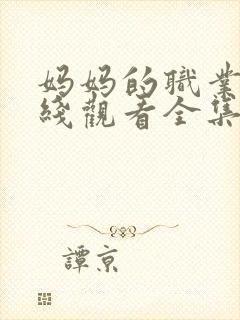 妈妈的職業
綫觀看全集
譚京